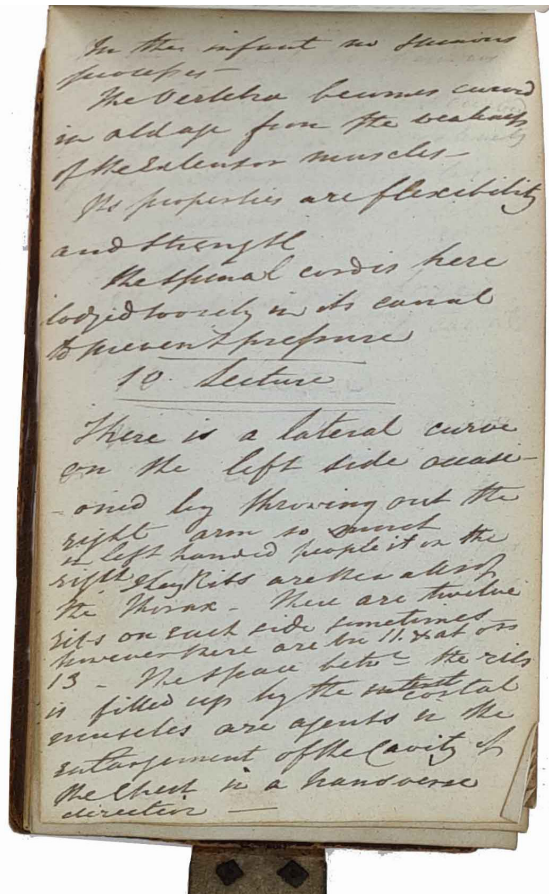 In the infant no spinous
processes —
The Vertebra becomes curved
in old age from the weakness
of the Extensor muscles —
Its properties are flexibility
and strength
The spinal cord is here
lodged loosely in its canal
to prevent pressure
10. Lecture
There is a lateral curve
on the left side occasi-
-oned by throwing out the
right arm so much
in left handed people it on the
right. Ribs are the
the Thorax — There are twelve
ribs on each side sometimes
however there are but 11. & at
13 — The space betwn the ribs
is filled up by the intercostal
muscles are agents in the
enlargement of the Cavity of
the Chest in a transverse
direction —